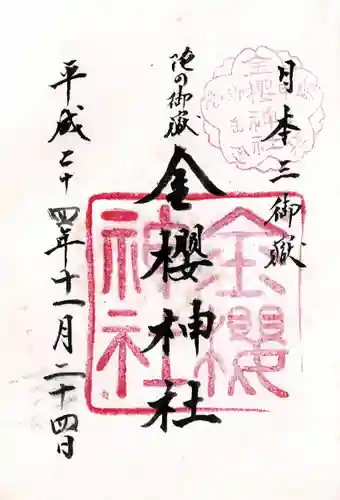 日本三御嶽
地の御嶽
金櫻神社
平成二十四年十一月二十四日
金櫻
神社